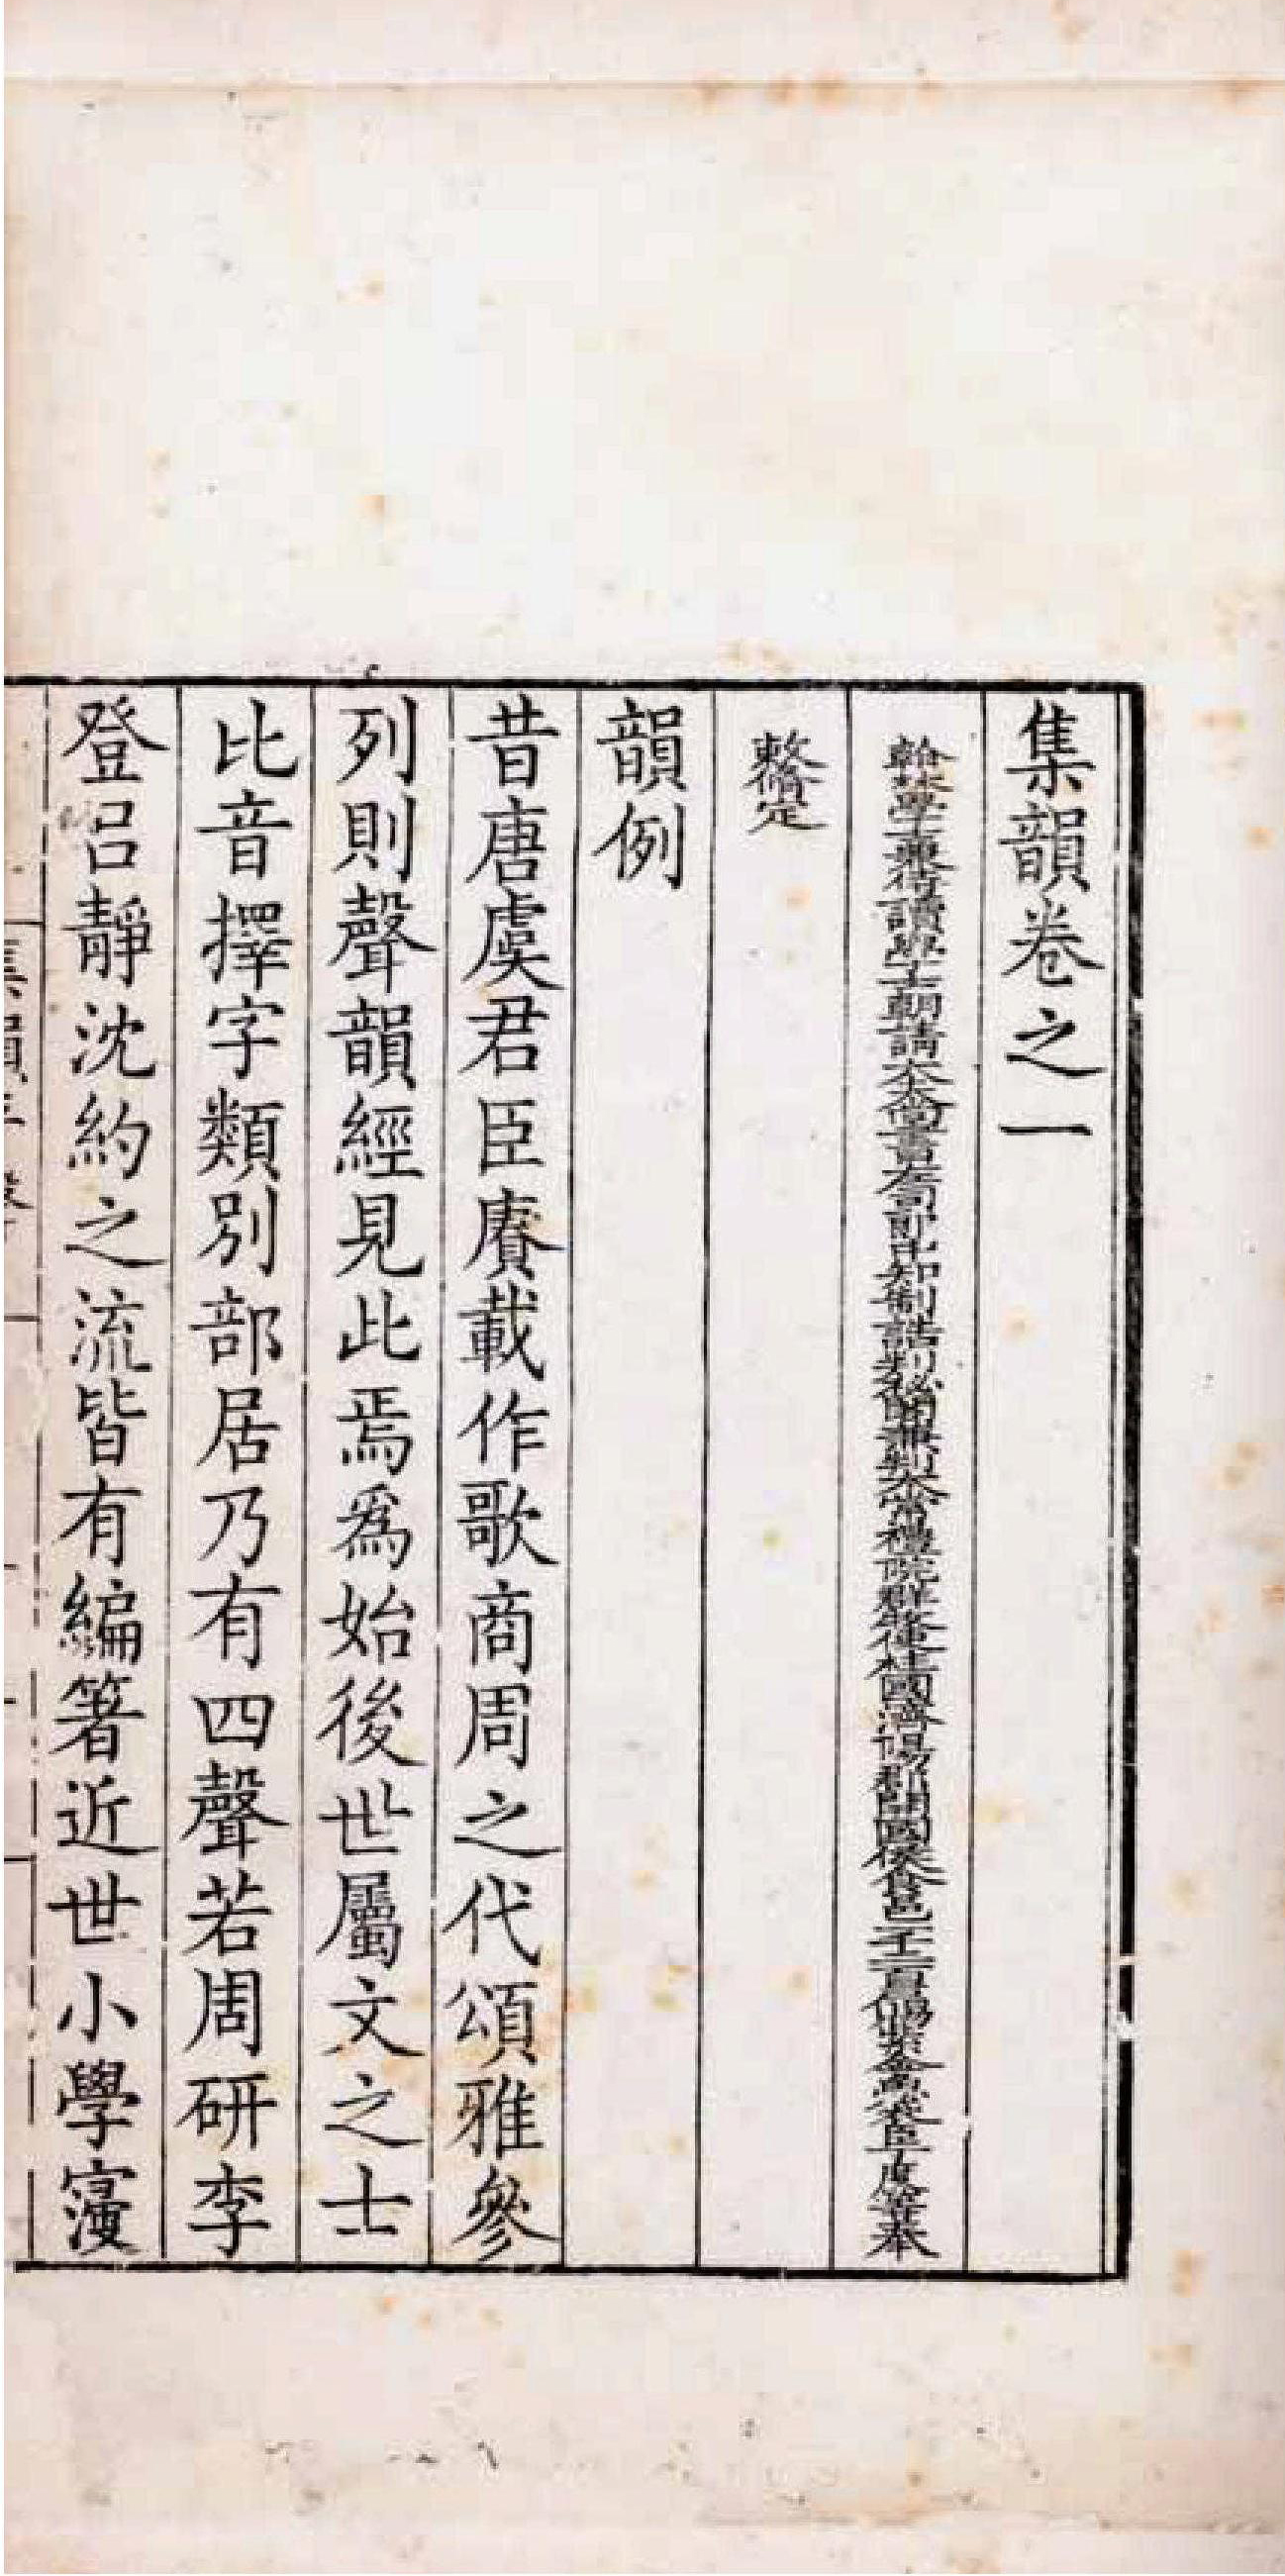 集韻卷之一
翰林學士兼侍讀學士朝請大夫尚書左司郎中知制誥判秘閣兼判太常禮院群牧使柱國濟陽郡開國侯食邑一千二百戶賜紫金魚袋臣丁度等奉
敕脩定
韻例
昔唐虞君臣賡載作歌商周之代頌雅參
列則聲韻經見此焉爲始後世屬文之士
比音擇字類別部居乃有四聲若周研李
登呂靜沈約之流皆有編著近世小學寖